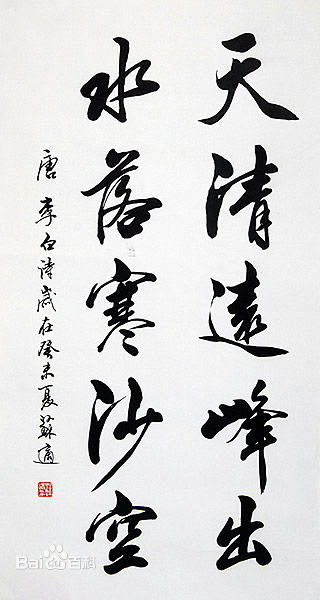 天清遠峰出
水落寒沙空
唐李白詩歲在癸未夏蘇適
Bai百科